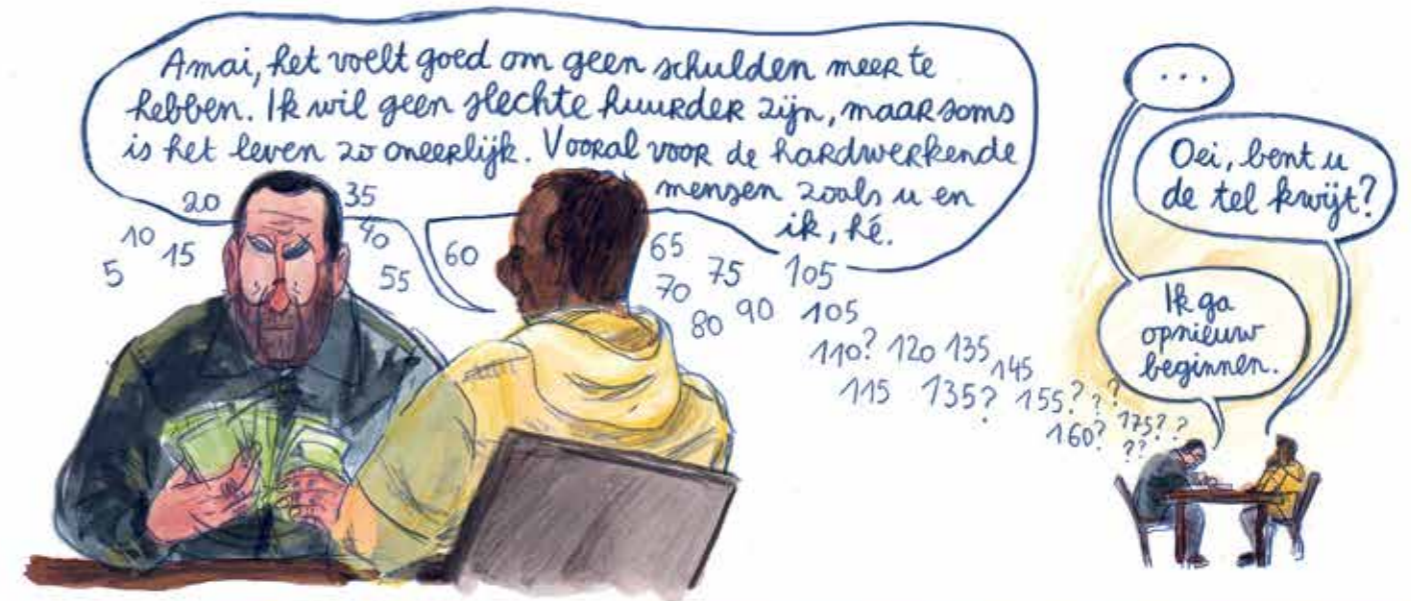 Amai, het voelt goed om geen schulden meer te
hebben. Ik wil geen slechte huurder zijn, maar soms
is het leven zo oneerlijk. Vooral voor de hardwerkende
mensen zoals u en
ik, hé.
5
10
15
20
35
40
55
60
65
70
75
80
90
105
105
110? 120 135
145
115 135? 155? ? ?
160? 175? ?
??
...
Oei, bent u
de tel kwijt?
Ik ga
opnieuw
beginnen.